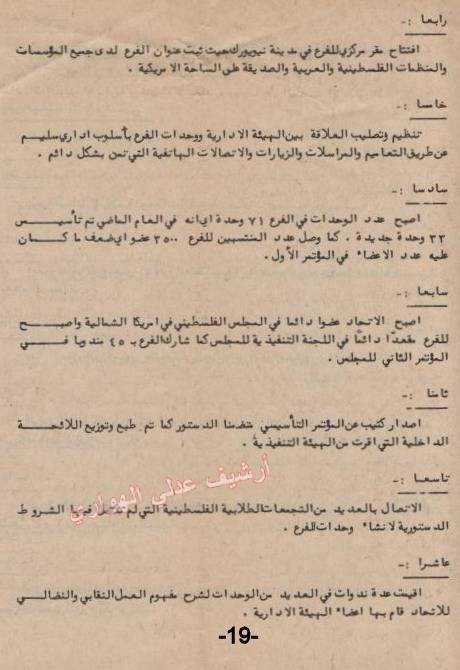 رابعا :-
افتتاح مقر مركزي للفرع في مدينة نيويورك حيث ثبت عنوان الفرع لدى جميع المؤسسات
والمنظمات الفلسطينية والعربية والصديقة على الساحة الامريكية .
خامسا :-
تنظيم وتصليب العلاقة بين الهيئة الادارية ووحدات الفرع بأسلوب اداري سليم
عن طريق التعاميم والمراسلات والزيارات والاتصالات الهاتفية التي تمن بشكل دائم .
سادسا :-
اصبح عدد الوحدات في الفرع ٧١ وحدة اي انه في العام الماضي تم تأسيس
٣٣ وحدة جديدة . كما وصل عدد المنتسبين للفرع ٣٥٠٠ عضو اي ضعف ما كان
عليه عدد الاعضاء في المؤتمر الأول .
سابعا :-
اصبح الاتحاد عضوا دائما في المجلس الفلسطيني في امريكا الشمالية واصبح
للفرع مقعدا دائما في اللجنة التنفيذية للمجلس كما شارك الفرع بـ ٤٥ مندوبا في
المؤتمر الثاني للمجلس .
ثامنا :-
اصدار كتيب عن المؤتمر التأسيسي متضمنا الدستور كما تم طبع وتوزيع اللائحة
الداخلية التي اقرت من الهيئة التنفيذية .
أرشيف عدلي الهواري
تاسعا :-
الاتصال بالعديد من التجمعات الطلابية الفلسطينية التي لم فيها الشروط
الدستورية لانشاء وحدات للفرع .
عاشرا :-
اقيمت عدة ندوات في العديد من الوحدات لشرح مفهوم العمل النقابي والنضالي
للاتحاد قام بها اعضاء الهيئة الادارية .
-19-